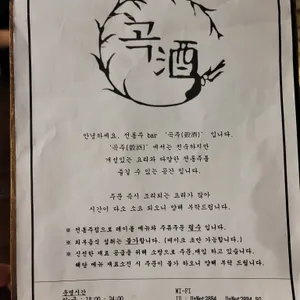 곡酒
안녕하세요. 전통주 bar '곡주(穀酒)' 입니다.
'곡주(穀酒)' 에서는 친숙하지만
개성있는 요리와 다양한 전통주를
즐길 수 있는 공간 입니다.
주문 즉시 조리되는 요리가 많아
시간이 다소 소요 되오니 양해 부탁드립니다.
※ 전통주법으로 테이블 메뉴와 주류주문 필수 입니다.
※ 외부음식 섭취는 불가합니다. (케이크 초만 가능합니다.)
※ 신선한 재료 공급을 위해 소량으로 주문,매입 하고 있습니다.
해당 메뉴 재료소진 시 주문이 불가 하오니 양해 부탁 드립니다.
운영시간
WI-FI
18:00 - 24:00